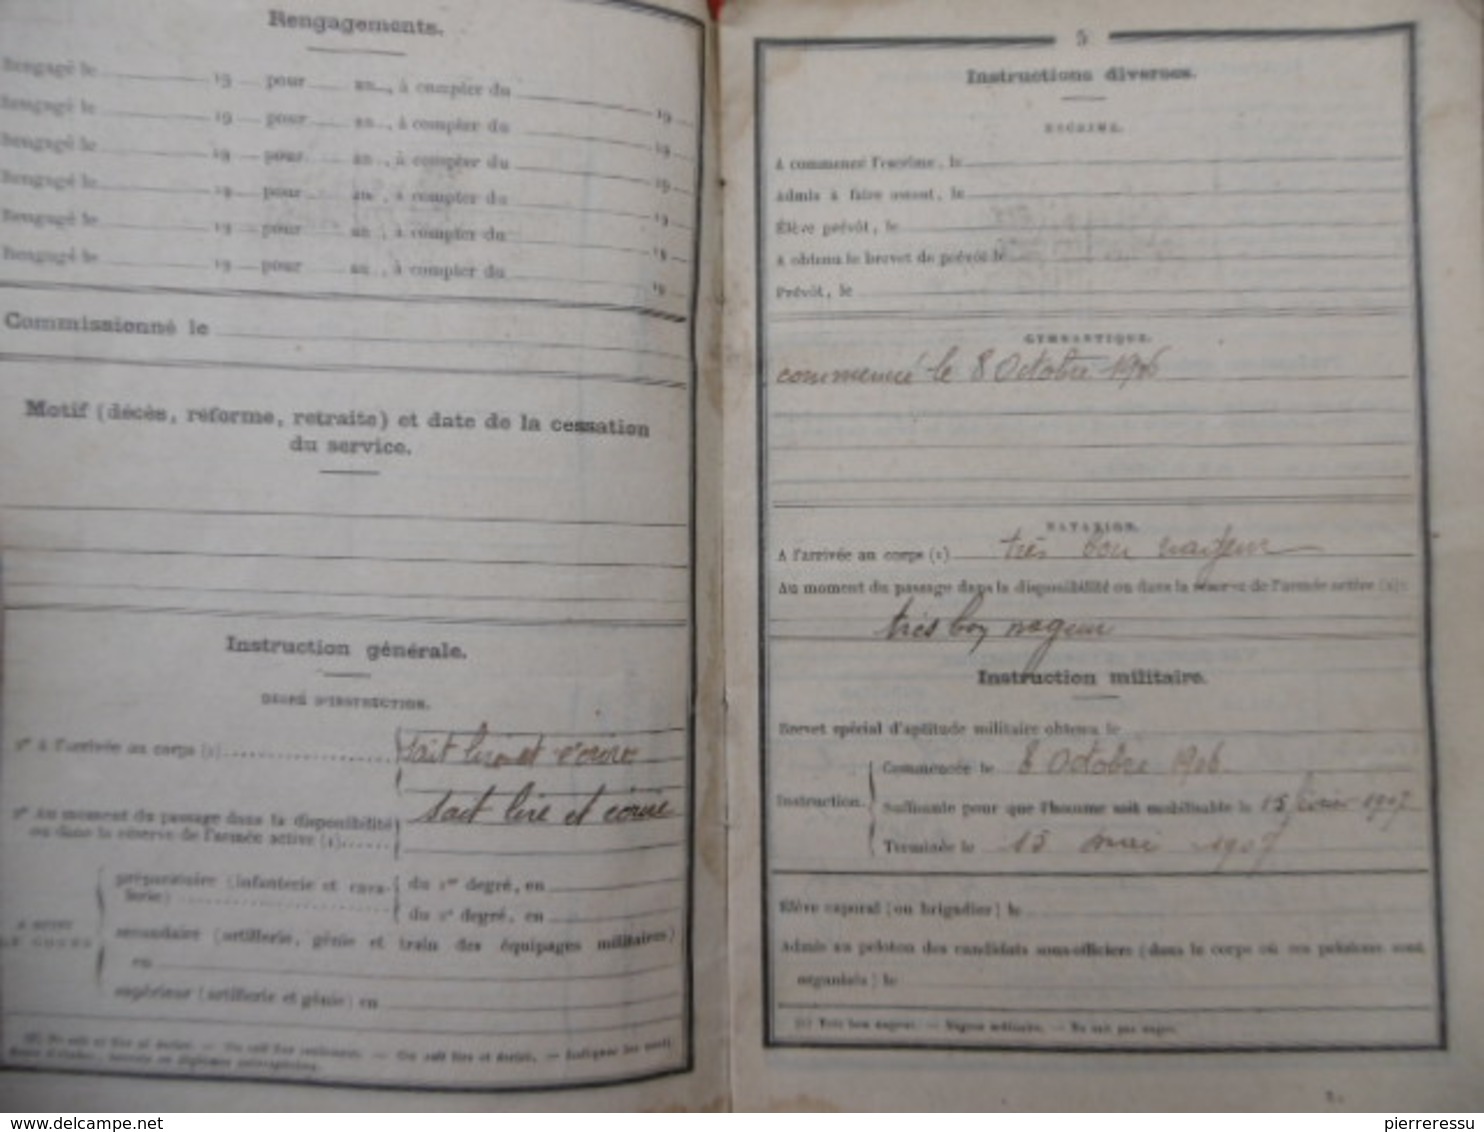 Rengagements.
Rengagé le 19 pour an , à compter du 19
Rengagé le 19 pour an , à compter du 19
Rengagé le 19 pour an , à compter du 19
Rengagé le 19 pour an , à compter du 19
Rengagé le 19 pour an , à compter du 19
Rengagé le 19 pour an , à compter du 19
Commissionné le
Motif (décès, réforme, retraite) et date de la cessation
du service.
Instruction générale.
DEGRÉ D'INSTRUCTION.
1° à l'arrivée au corps (1) sait lire et écrire
2° Au moment du passage dans la disponibilité
ou dans la réserve de l'armée active (1) sait lire et écrire
préparatoire (infanterie et cava-
lerie)
du 1er degré, en
du 2e degré, en
secondaire (artillerie, génie et train des équipages militaires)
en
supérieur (artillerie et génie) en
5
Instructions diverses.
ESCRIME.
A commencé l'escrime, le
Admis à faire assaut, le
Élève prévôt, le
A obtenu le brevet de prévôt le
Prévôt, le
GYMNASTIQUE.
commencé le 8 Octobre 1906
NATATION.
A l'arrivée au corps (1) très bon nageur
Au moment du passage dans la disponibilité ou dans la réserve de l'armée active (1):
très bon nageur
Instruction militaire.
Brevet spécial d'aptitude militaire obtenu le
Instruction.
Commencée le 8 Octobre 1906
Suffisante pour que l'homme soit mobilisable le 15 février 1907
Terminée le 15 mai 1907
Élève caporal (ou brigadier) le
Admis au peloton des candidats sous-officiers (dans le corps où ces pelotons sont
organisés) le
(1) Très bon nageur. — Nageur ordinaire. — Ne sait pas nager.
www.delcampe.net
pierreressu